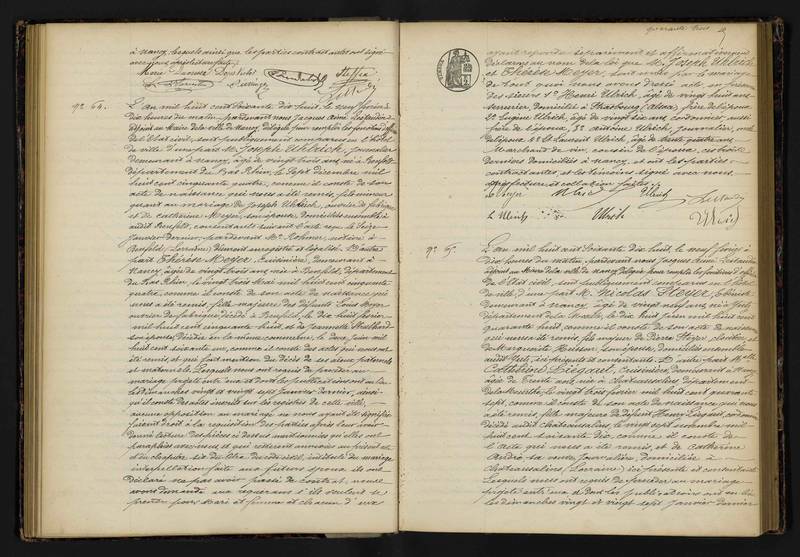 à Nancy, lesquels ainsi que les parties contractantes ont signé
avec nous après lecture faite.
N° 64.
L'an mil huit cent soixante dix huit, le neuf février à
dix heures du matin, pardevant nous Jacques Aimé
adjoint au Maire de la ville de Nancy, délégué pour remplir les fonctions d'officier
de l'Etat civil, sont publiquement comparus en l'hôtel
de ville d'une part M. Joseph Ulrich, journalier
demeurant à Nancy, âgé de vingt trois ans né à Benfeld,
département du Bas Rhin, le sept décembre mil
huit cent cinquante quatre, comme il conste de son
acte de naissance qui nous a été remis, fils mineur
quant au mariage de Joseph Ulrich, ouvrier de fabrique
et de Catherine Meyer, son épouse, domiciliés ensemble à
audit Benfeld, consentants suivant l'acte reçu le seize
janvier dernier, pardevant Me Rohmer, notaire à
Benfeld, (Lorraine) dûment enregistré et légalisé. D'autre
part Thérèse Meyer, cuisinière, demeurant à
Nancy, âgée de vingt trois ans née à Benfeld, département
du Bas Rhin, le vingt trois Mai mil huit cent cinquante
quatre, comme il conste de son acte de naissance qui
nous a été remis, fille majeure des défunts Louis Meyer,
ouvrier de fabrique décédé à Benfeld, le dix huit février
mil huit cent cinquante huit, et de Jeannette
son épouse décédée en la même commune, le deux juin mil
huit cent soixante un, comme il conste des actes qui nous ont
été remis et qui font mention du décès de ses aïeux paternels
et maternels. Lesquels nous ont requis de procéder au
mariage projeté entre eux et dont les publications ont eu lieu
les dimanches vingt et vingt sept janvier dernier, ainsi
qu'il conste des actes inscrits sur les registres de cette ville,
aucune opposition au mariage ne nous ayant été signifiée
faisant droit à la réquisition des parties après leur avoir
donné lecture des pièces ci dessus mentionnées qu'elles ont
paraphées avec nous et qui resteront annexées au présent acte
et du chapitre six du titre du code civil, intitulé du mariage,
interpellation faite aux futurs époux ils ont
déclaré ne pas avoir passé de contrat, nous
avons demandé aux requérants s'ils veulent se
prendre pour mari et femme et chacun d'eux
quarante trois
ayant répondu séparément et affirmativement
déclarons au nom de la loi que M. Joseph Ulrich
et Thérèse Meyer, sont unis par le mariage
de tout quoi nous avons dressé acte en présence
des sieurs 1° Henri Ulrich, âgé de vingt huit ans
serrurier, domicilié à Strasbourg (Alsace), frère de l'époux
2° Eugène Ulrich, âgé de vingt six ans cordonnier, aussi
frère de l'époux, 3° Antoine Ulrich, journalier,
de l'époux, 4° Laurent Ulrich, âgé de trente quatre ans
marchand de vin, cousin de l'époux, ces trois
derniers domiciliés à Nancy, et ont les parties
contractantes, et les témoins signé avec nous
après lecture et collation faites.
T. Meyer Ulrich Ulrich
Ulrich
N° 65.
L'an mil huit cent soixante dix huit, le neuf février à
dix heures du matin, pardevant nous Jacques Aimé
adjoint au Maire de la ville de Nancy délégué pour remplir les fonctions d'officier
de l'Etat civil, sont publiquement comparus en l'hôtel
de ville d'une part M. Nicolas
demeurant à Nancy, âgé de vingt neuf ans né à
département de la Moselle, le dix huit juin mil huit cent
quarante huit, comme il conste de son acte de naissance
qui nous a été remis, fils majeur de Pierre
de Marguerite son épouse, domiciliés ensemble
audit ici présents et consentants. D'autre part Melle
Catherine cuisinière, demeurant à Nancy
âgée de trente ans née à Chateausalins département
de la Meurthe, le vingt février mil huit cent quarante
sept, comme il conste de son acte de naissance qui nous
a été remis, fille majeure de défunt Henry
décédé audit Chateausalins, le vingt sept novembre mil
huit cent soixante dix, comme il conste de
l'acte qui nous a été remis et de Catherine
André, sa veuve journalière, domiciliée à
Chateausalins, (Lorraine) ici présente et consentante.
Lesquels nous ont requis de procéder au mariage
projeté entre eux et dont les publications ont eu lieu
les dimanches vingt et vingt sept janvier dernier